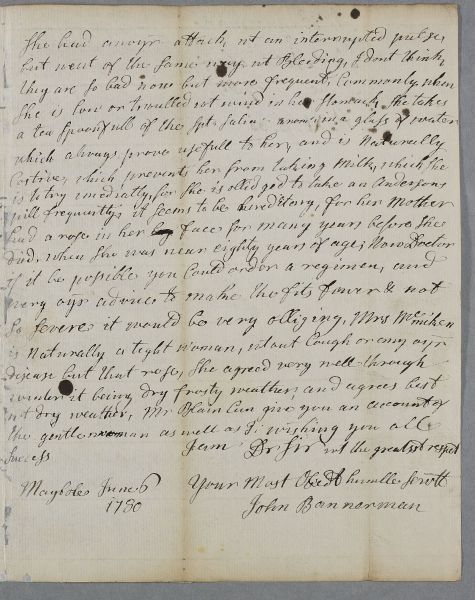 She had anoyr attack, wt an interrupted pulse,
but went of the same way wt Bleeding, I dont think,
they are so bad now but more frequent, Commonly when
she is low or troubled wt wind in her stomach, she takes
a tea spoonfull of the Spt. Saline in a glass of water
which always prove usefull to her, and is Naturally
Costive, which prevents her from taking Milk, which she
is to try imediatly, for she is oblidged to take an Andersons
pill frequently, it seems to be hereditory, for her Mother
had a rose in her face for many years before she
Died, when she was near eighty years of age; Now Doctor
if it be possible you Could order a regimen, and
every oyr advice to make the fits fewer & not
so severe it would be very obliging, Mrs
is Naturally a tight woman, wtout Cough or any oyr
disease but that rose, She agreed very well through
winter it being dry frosty weather, and agrees best
wt dry weather, Mr Blain Can give you an account of
the gentlewoman as well as I, wishing you all
Success I am Dr Sir wt the greatest respect
Maybole June 6 Your Most Obedt humble servtt
1730 John Bannerman